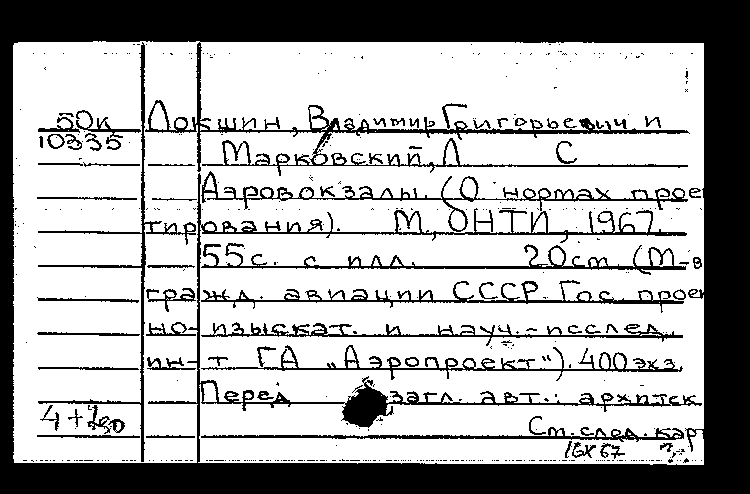 50к Локшин, Владимир Григорьевич и
10335
Марковский, Л С
Аэровокзалы. (О нормах прое
тирования). М, ОНТИ, 1967.
55с. с илл. 20см. (М-в
гражд. авиации СССР. Гос. прое
но-изыскат. и науч.-исслед.
ин-т ГА „Аэропроект"). 400 экз.
Перед загл. авт.: архитек
4+
См. след. кар
IGX 67